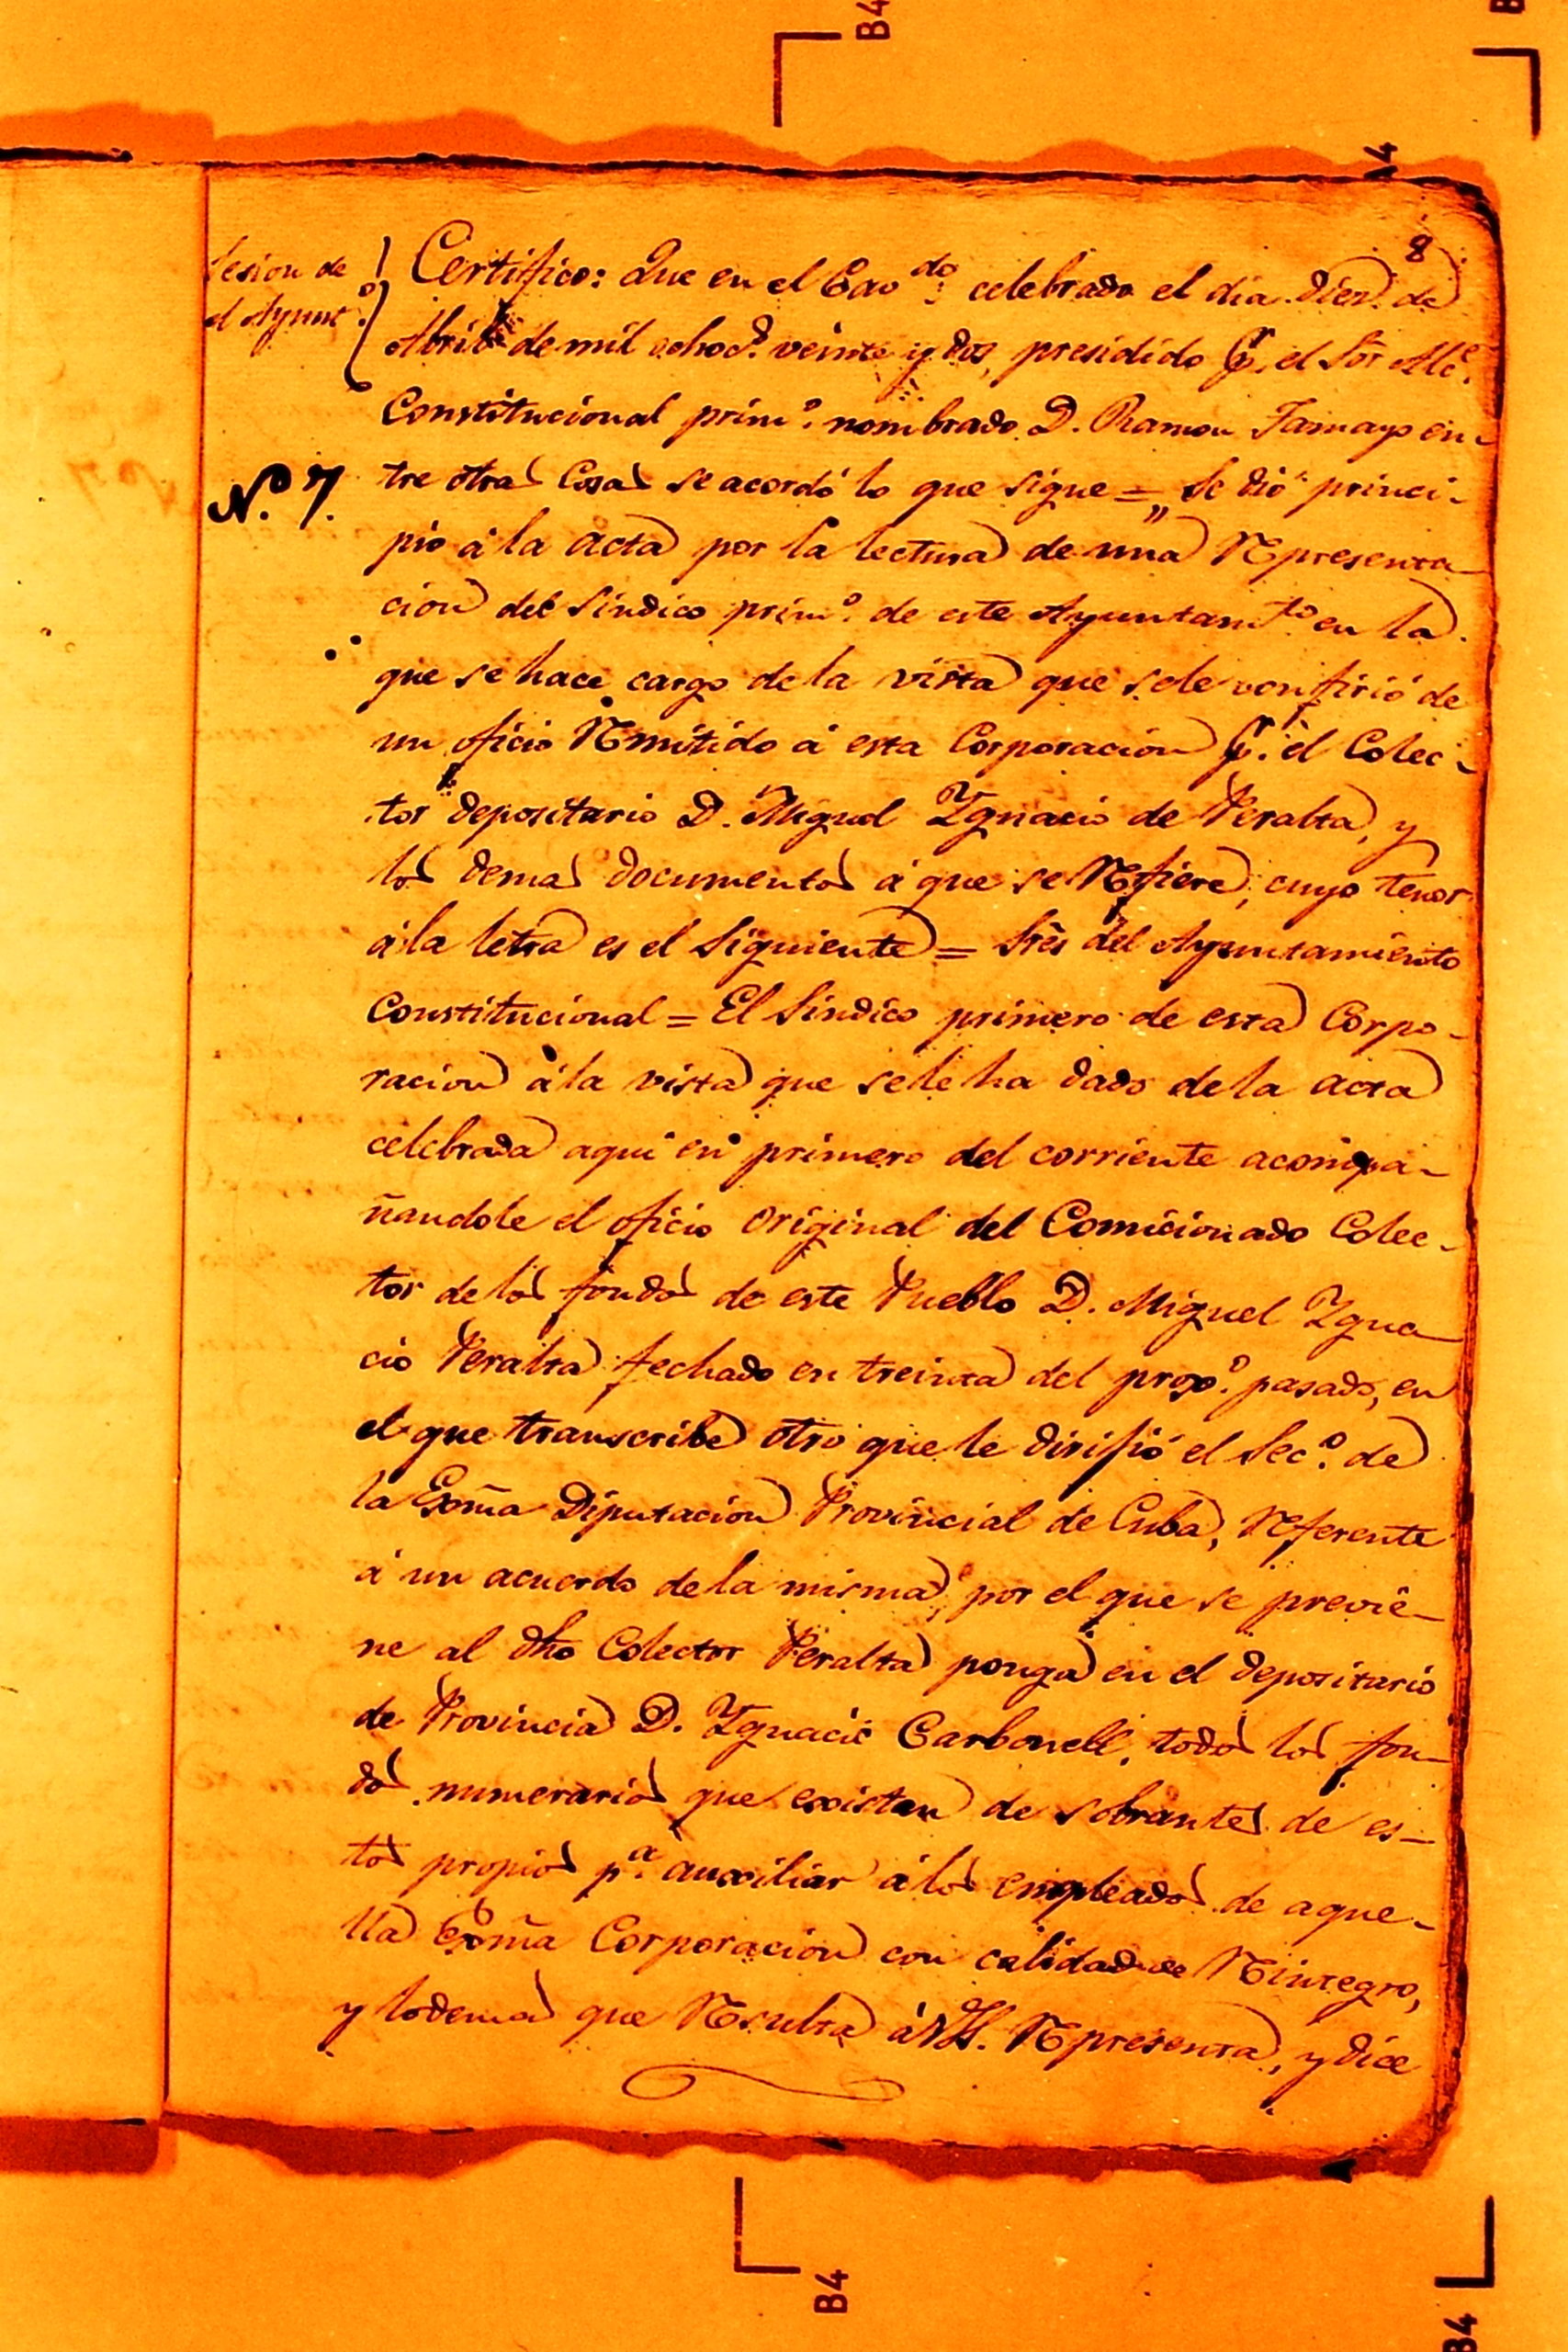 B4
A4
8
Sesion de
el Ayunt.º
Nº. 7.
Certifico: Que en el Cavdo. celebrado el dia diez de
Abril de mil ochocs. veinte y dos, presidido p. el Sor Alce.
Constitucional primº. nombrado D. Ramon Tamayo en-
tre otras Cosas se acordó lo que sigue = „ Se dió princi-
pio á la acta por la lectura de una Representa-
cion del Síndico primº. de este Ayuntamto. en la
que se hace cargo de la vista que se le confirió de
un oficio Remitido á esta Corporacion p. el Colec-
tor depositario D. Miguel Ygnacio de Peralta, y
los demas documentos á que se Refiere, cuyo tenor
á la letra es el siguiente = Sres del Ayuntamiento
Constitucional = El Síndico primero de esta Corpo-
racion á la vista que se le ha dado de la acta
celebrada aqui en primero del corriente acompa-
ñandole el oficio original del Comicionado Colec-
tor de los fondos de este Pueblo D. Miguel Ygna-
cio Peralta fechado en treinta del proxº. pasado, en
el que transcribe otro que le dirijió el Secº. de
la Exma Diputacion Provincial de Cuba, Referente
á un acuerdo de la misma, por el que se previe-
ne al dho Colector Peralta ponga en el depositario
de Provincia D. Ygnacio Carbonell, todos los fon-
dos numerarios que existan de sobrantes de es-
tos propios pª. auxiliar á los empleados de aque-
lla Exma Corporacion con calidad de Reintegro,
y lo demas que Resulta á VS. Representa, y dice
B4
B4